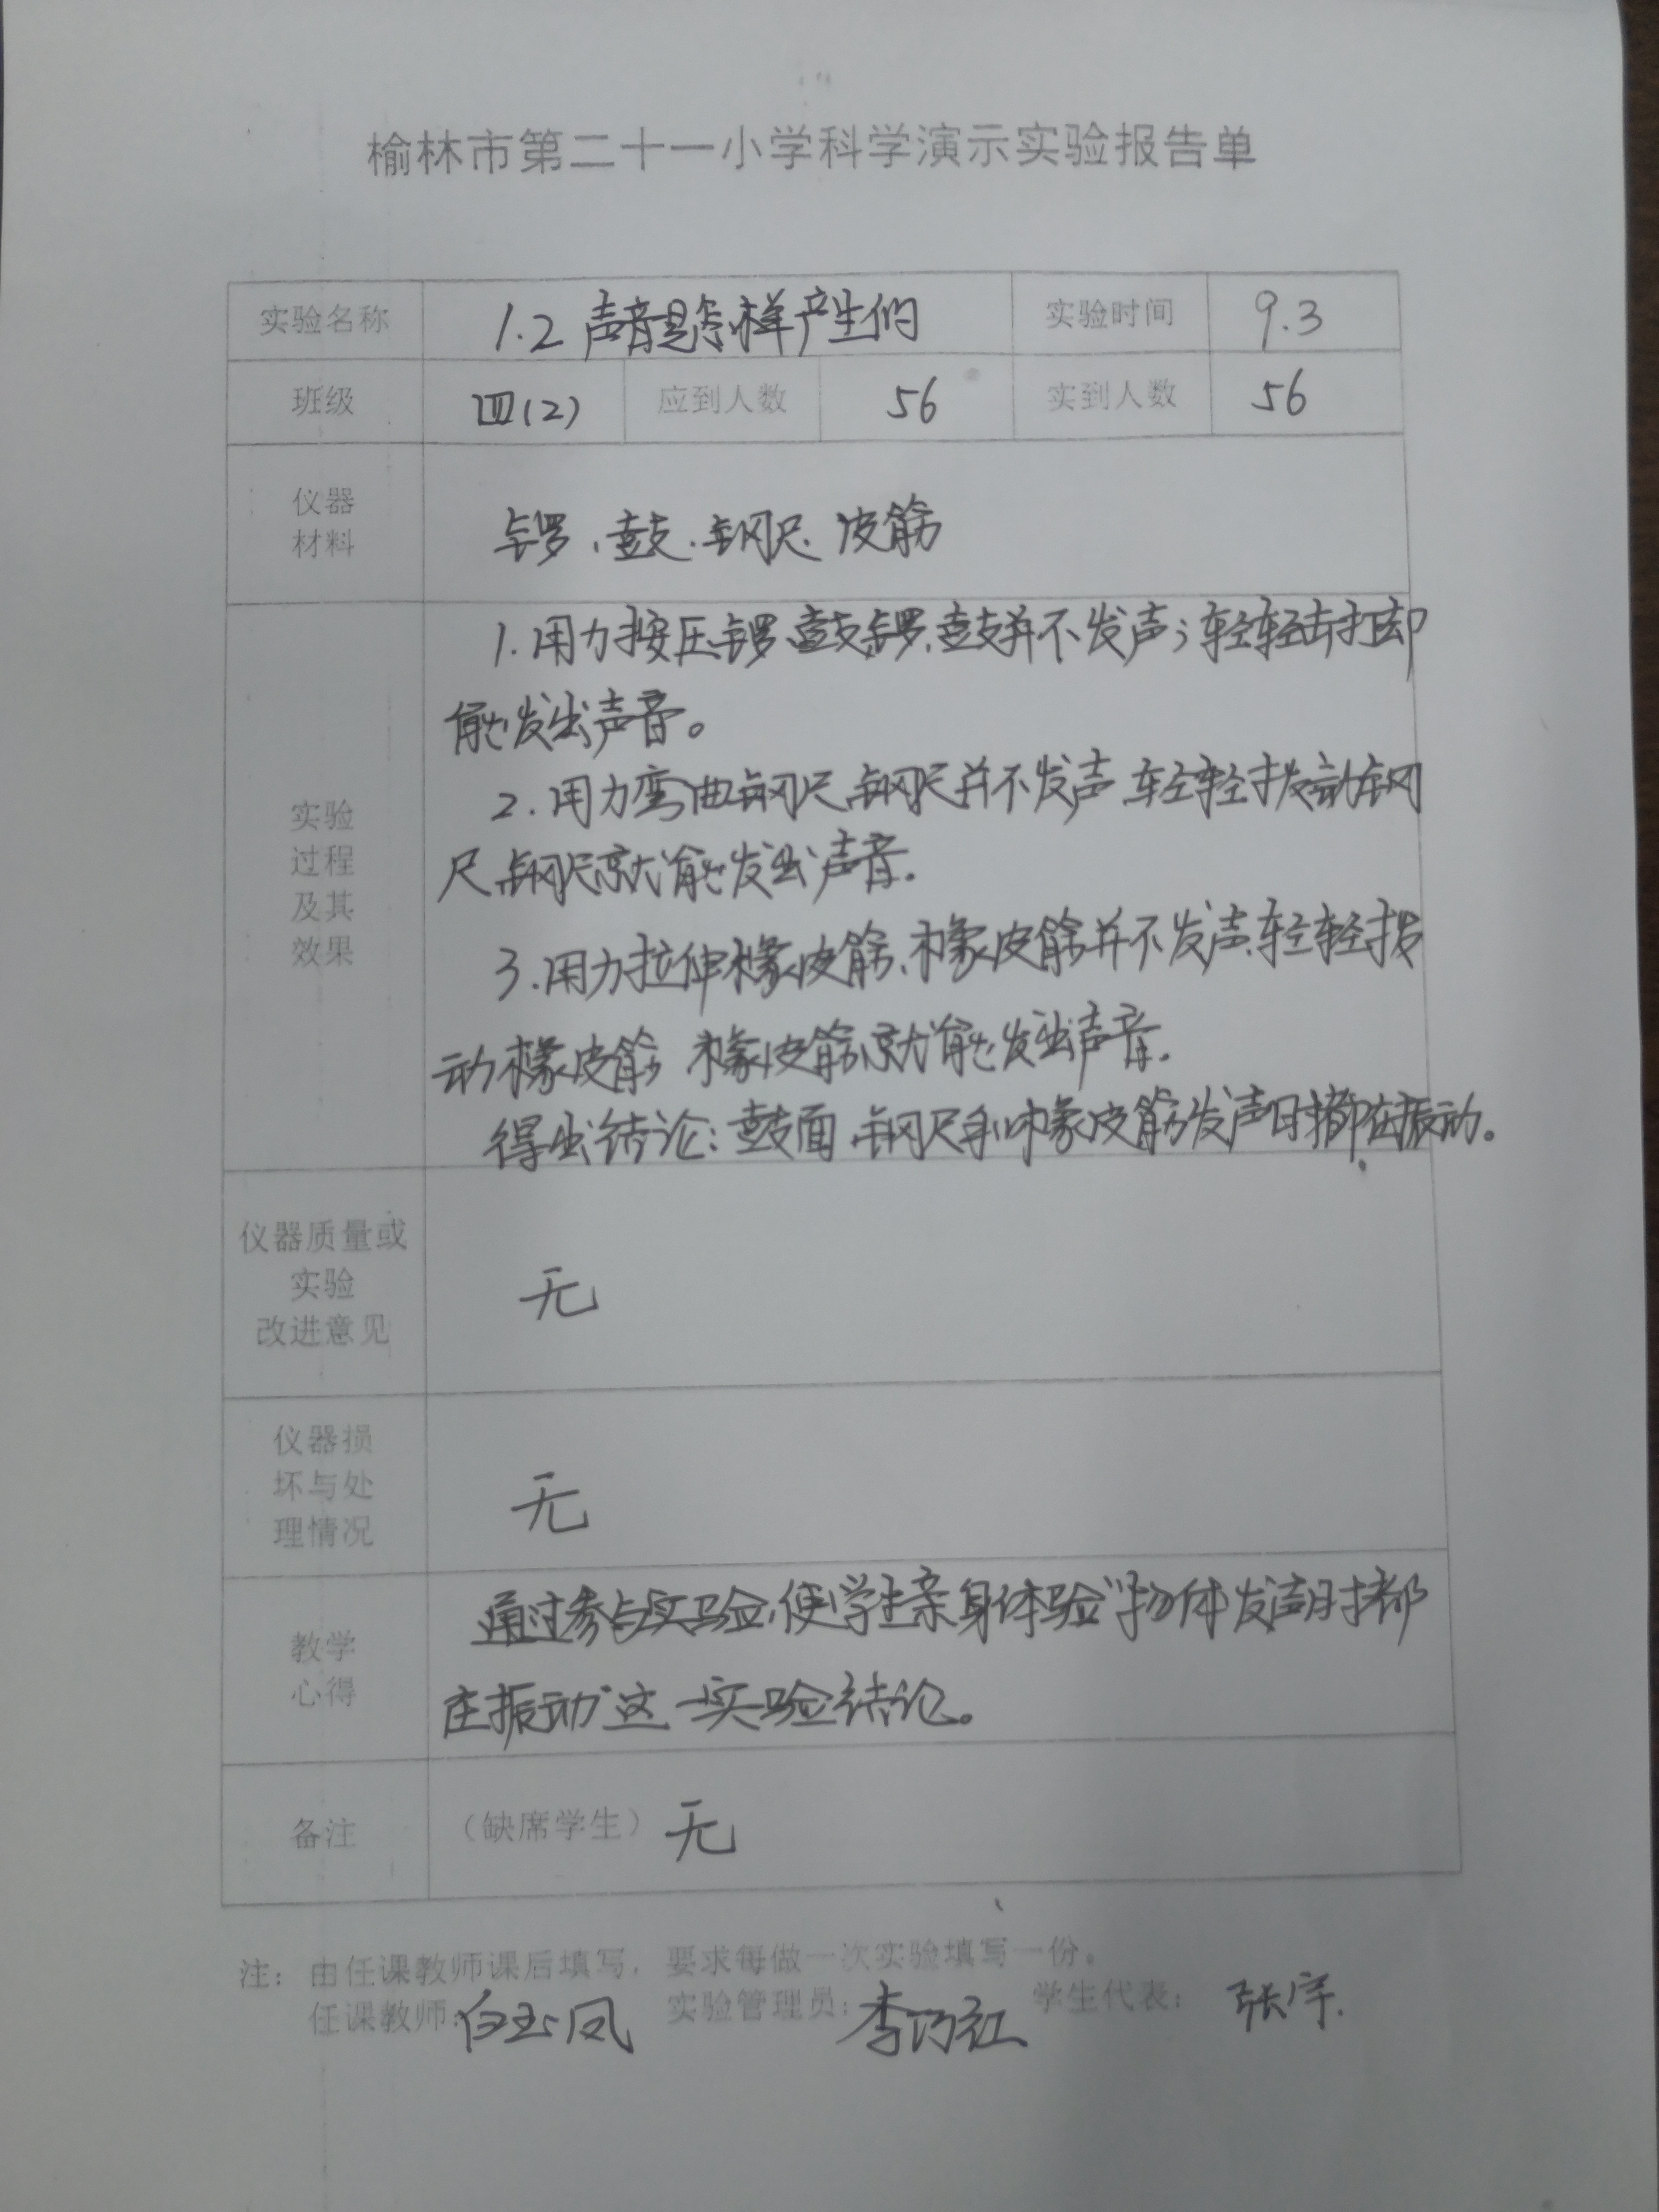 榆林市第二十一小学科学演示实验报告单
实验名称 1.2 声音是怎样产生的 实验时间 9.3
班级 四(2) 应到人数 56 实到人数 56
仪器
材料
锣、鼓、钢尺、皮筋
实验
过程
及其
效果
1.用力按压锣、鼓,锣、鼓并不发声;轻轻击打却
能发出声音。
2.用力弯曲钢尺,钢尺并不发声,轻轻拨动钢
尺,钢尺就能发出声音。
3.用力拉伸橡皮筋、橡皮筋并不发声,轻轻拨
动橡皮筋 橡皮筋就能发出声音。
得出结论:鼓面、钢尺和橡皮筋发声时都在振动。
仪器质量或
实验
改进意见
无
仪器损
坏与处
理情况
无
教学
心得
通过参与实验,使学生亲身体验“物体发声时都
在振动”这一实验结论。
备注 (缺席学生) 无
注:由任课教师课后填写,要求每做一次实验填写一份。
任课教师:白玉凤 实验管理员:李巧红 学生代表:张宇.